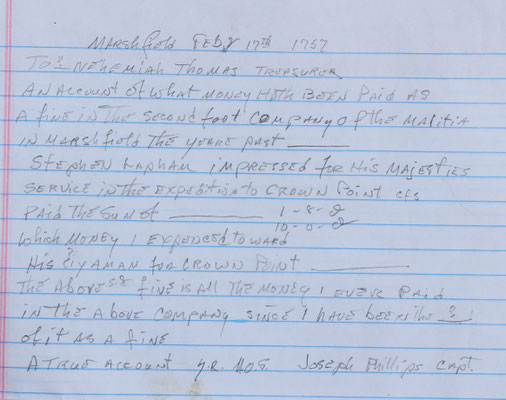 Marshfield Feby 17th 1757
To Nehemiah Thomas Treasurer
An Account of what money Hath Been Paid as
A fine in the Second foot Company of the Malitia
in Marshfield the yeare past ______
Stephen Lapham impressed for His Majesties
Service in the Expedition to Crown Point
Paid The Sum of ______ 1-8-0
10-0-0
Which Money I expended toward
His for Crown Point ______
The Above fine is all the money I ever paid
in the Above Company since I have been the ?
of it as a fine
A True Account Joseph Phillips Capt.